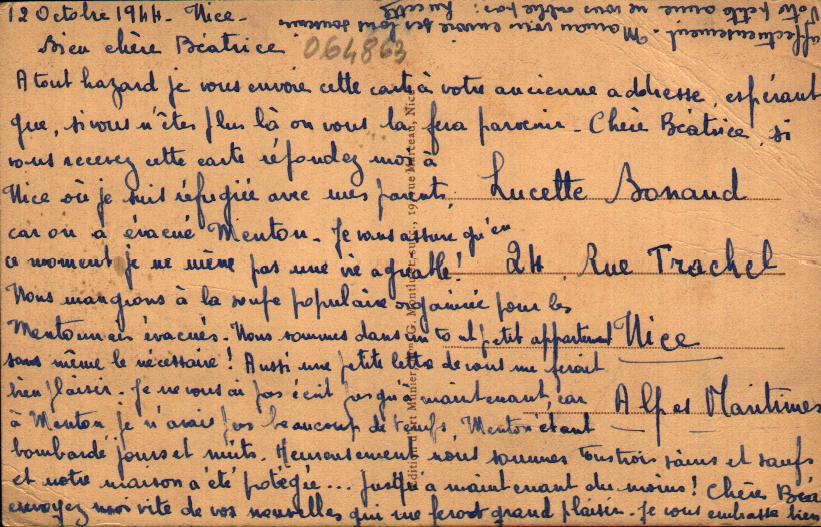 12 Octobre 1944. Nice.
Bien chère Béatrice
064863
A tout hazard je vous envoie cette carte à votre ancienne addresse, espérant
que, si vous n'êtes plus là on vous la fera parvenir. Chère Béatrice, si
vous recevez cette carte répondez moi à
Nice où je suis réfugiée avec mes parents,
car on a évacué Menton. Je vous assure qu'en
ce moment je ne mène pas une vie agréable!
Nous mangeons à la soupe populaire organisée pour les
Mentonnais évacués. Nous sommes dans un tout petit appartement
sans même le nécessaire! Aussi une petite lettre de vous me ferait
bien plaisir. Je ne vous ai pas écrit jusqu'à maintenant, car
à Menton je n'avais pas beaucoup de temps, Menton étant
bombardé jours et nuits. Heureusement nous sommes tous trois sains et saufs
et notre maison a été protégée... jusqu'à maintenant du moins! Chère Béa
envoyez moi vite de vos nouvelles qui me feront grand plaisir. Je vous embrasse bien
affectueusement. Maman vous envoie ses bons souvenirs
Votre petite amie ne vous oublie pas: Lucette
Lucette Bonaud
24, Rue Trachel
Nice
Alpes Maritimes
Édition d'Art Munier, G. Montluet, succ., 19, rue Marceau, Nice